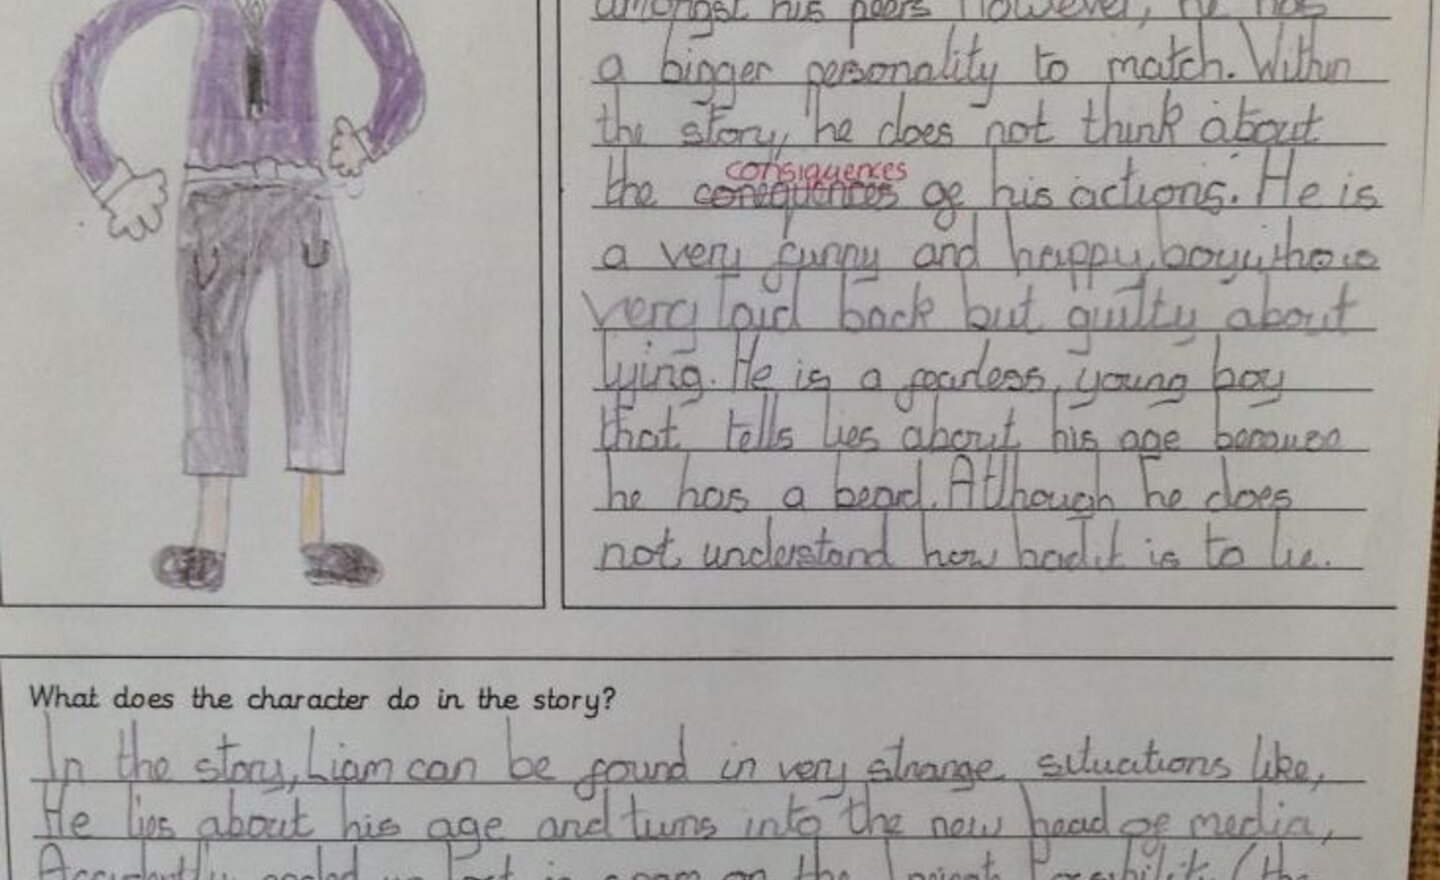 amongst his peers However, he has
a bigger personality to match. Within
the story, he does not think about
consiquences
the conequences of his actions. He is
a very funny and happy, boy, who is
very laid back but guilty about
lying. He is a fearless, young boy
that tells lies about his age because
he has a beard. Although he does
not understand how bad it is to lie.
What does the character do in the story?
In the story, Liam can be found in very strange situations like,
He lies about his age and turns into the new head of media,
Accidently ended up lost in space on the Possibility (the